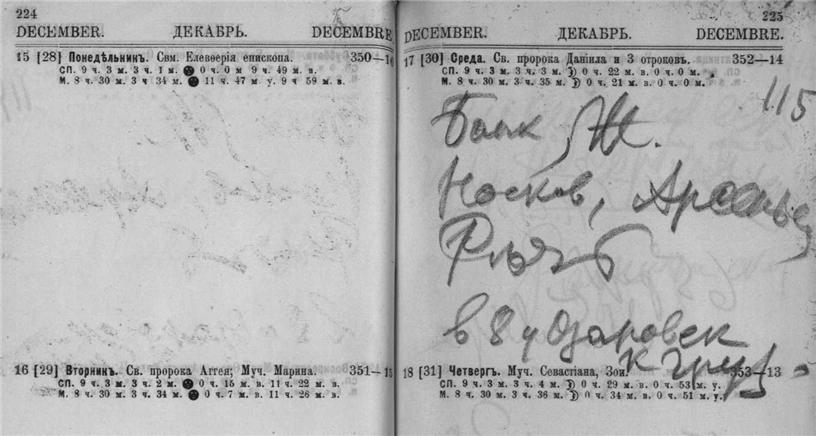 224
DECEMBER. ДЕКАБРЬ. DECEMBRE.
15 [28] Понедѣльникъ. Свм. Елевѳерія епископа. 350—1
СП. 9 ч. 3 м. 3 ч. 1 м. 0 ч. 0 м 9 ч. 49 м. в.
М. 8 ч. 30 м. 3 ч 34 м. 11 ч. 47 м у. 9 ч 59 м. в.
16 [29] Вторникъ. Св. пророка Аггея; Муч. Марина. 351—1
СП. 9 ч. 3 м. 3 ч. 2 м. 0 ч. 15 м. в. 11 ч. 22 м. в.
М. 8 ч. 30 м. 3 ч. 34 м. 0 ч. 7 м. в. 11 ч. 26 м. в.
225
DECEMBER. ДЕКАБРЬ. DECEMBRE.
17 [30] Среда. Св. пророка Даніила и 3 отроковъ. 352—14
СП. 9 ч. 3 м. 3 ч. 3 м. 0 ч. 22 м. в. 0 ч. 0 м.
М. 8 ч. 30 м. 3 ч. 35 м. 0 ч. 21 м. в. 0 ч. 0 м.
115
Банк Ж.
Носков, Арсень
в 8 у Озаровск
к
18 [31] Четвергъ. Муч. Севастіана, Зои. 353—13
СП. 9 ч. 3 м. 3 ч. 4 м. 0 ч. 29 м. в. 0 ч. 53 м. у.
М. 8 ч. 30 м. 3 ч. 36 м. 0 ч. 34 м. в. 0 ч. 51 м. у.